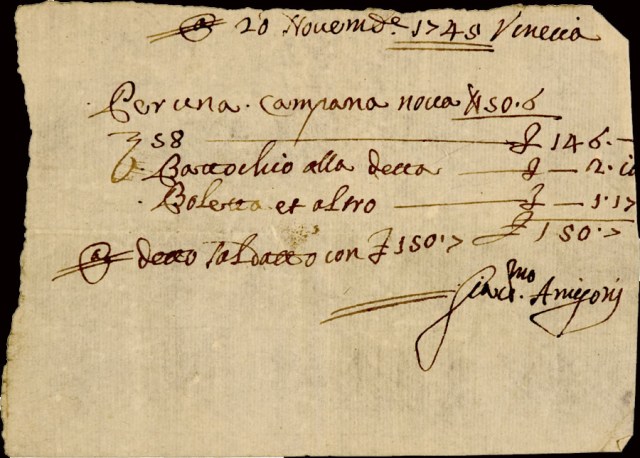 @ 20 Novembre. 1745 Venecia
Per una. Campana noua # 50.6
58 £ 146.—
Battochio alla detta — £ — 2.
Boletta et altro — £ — 1.17
£ 150.7
@ detto saldatto con £ 150.7
Giac.mo Amigoni